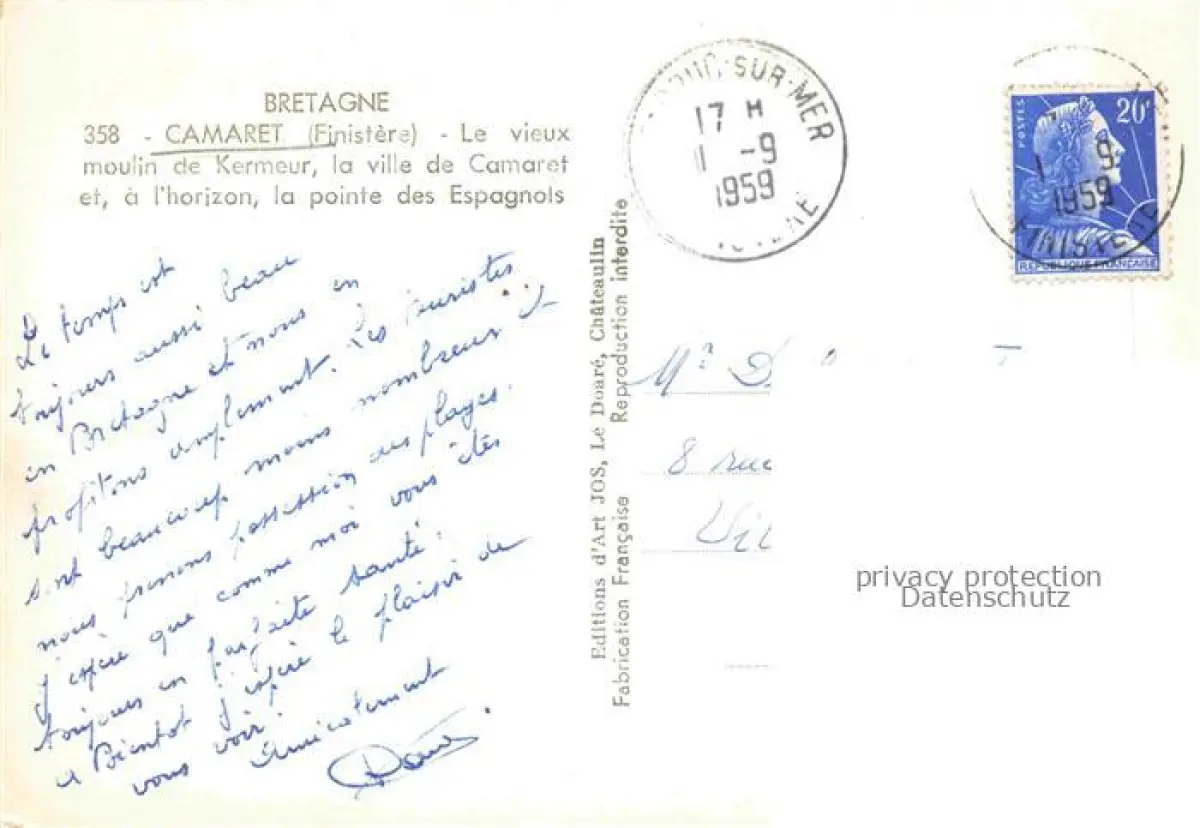 BRETAGNE
358 - CAMARET (Finistère) - Le vieux
moulin de Kermeur, la ville de Camaret
et, à l'horizon, la pointe des Espagnols
Le temps est
toujours aussi beau
en Bretagne et nous en
profitons amplement. Les touristes
sont beaucoup moins nombreux et
nous prenons possession des plages.
J'espère que comme moi vous êtes
toujours en parfaite santé.
A Bientôt j'espère le plaisir de
vous voir.
Amicalement
Editions d'Art JOS, Le Doaré, Châteaulin
Fabrication Française Reproduction interdite
SUR-MER
17 H
1 -9
1959
POSTES
20F
REPUBLIQUE FRANÇAISE
1 9
1959
FINISTERE
Mr D
8 rue
privacy protection
Datenschutz